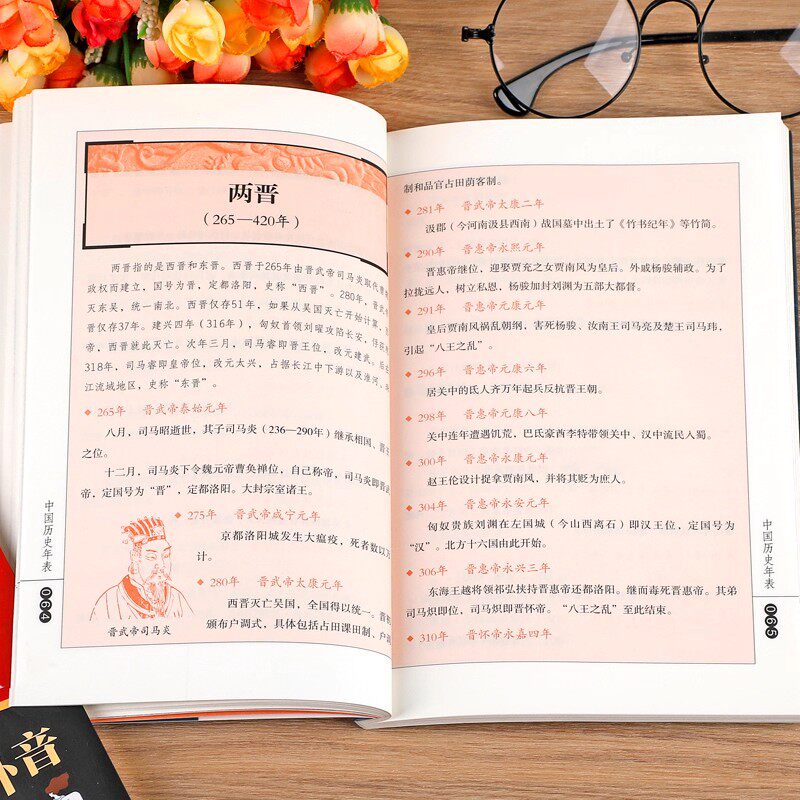 两晋
（265—420年）
两晋指的是西晋和东晋。西晋于265年由晋武帝司马炎取代曹
政权而建立，国号为晋，定都洛阳，史称“西晋”。280年，晋
灭东吴，统一南北。西晋仅存51年，如果从吴国灭亡开始计算，
晋仅存37年。建兴四年（316年），匈奴首领刘曜攻陷长安，俘
帝，西晋就此灭亡。次年三月，司马睿即晋王位，改元建武。
318年，司马睿即皇帝位，改元太兴，占据长江中下游以及淮河、
江流域地区，史称“东晋”。
265年 晋武帝泰始元年
八月，司马昭逝世，其子司马炎（236—290年）继承相国、晋
之位。
十二月，司马炎下令魏元帝曹奂禅位，自己称帝，司马炎即晋武
帝，定国号为“晋”，定都洛阳。大封宗室诸王。
275年 晋武帝咸宁元年
京都洛阳城发生大瘟疫，死者数以万
计。
280年 晋武帝太康元年
西晋灭亡吴国，全国得以统一。晋
颁布户调式，具体包括占田课田制、户调
晋武帝司马炎
中国历史年表
064
制和品官占田荫客制。
281年 晋武帝太康二年
汲郡（今河南汲县西南）战国墓中出土了《竹书纪年》等竹简。
290年 晋惠帝永熙元年
晋惠帝继位，迎娶贾充之女贾南风为皇后。外戚杨骏辅政。为了
拉拢远人，树立私恩，杨骏加封刘渊为五部大都督。
291年 晋惠帝元康元年
皇后贾南风祸乱朝纲，害死杨骏、汝南王司马亮及楚王司马玮，
引起“八王之乱”。
296年 晋惠帝元康六年
居关中的氐人齐万年起兵反抗晋王朝。
298年 晋惠帝元康八年
关中连年遭遇饥荒，巴氐豪酋李特带领关中、汉中流民入蜀。
300年 晋惠帝永康元年
赵王伦设计捉拿贾南风，并将其贬为庶人。
304年 晋惠帝永安元年
匈奴贵族刘渊在左国城（今山西离石）即汉王位，定国号为
“汉”。北方十六国由此开始。
306年 晋惠帝永兴三年
东海王越将领祁弘挟持晋惠帝还都洛阳。继而毒死晋惠帝。其弟
司马炽即位，司马炽即晋怀帝。“八王之乱”至此结束。
310年 晋怀帝永嘉四年
中国历史年表
065
音